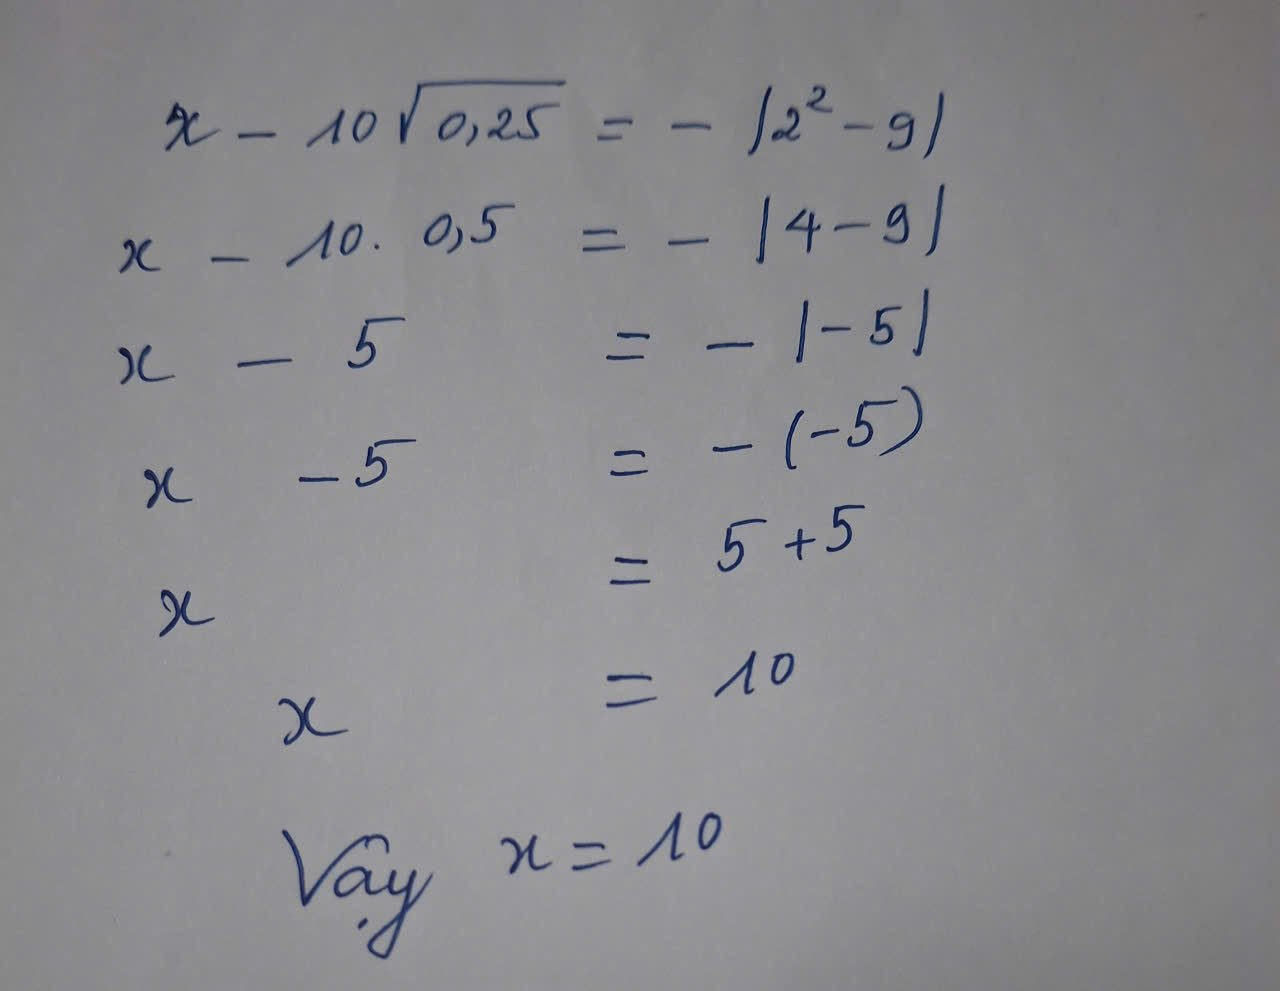 x - 10√0,25 = - |2² - 9|
x - 10. 0,5 = - |4 - 9|
x - 5 = - |-5|
x - 5 = - (-5)
x = 5 + 5
x = 10
Vậy x = 10